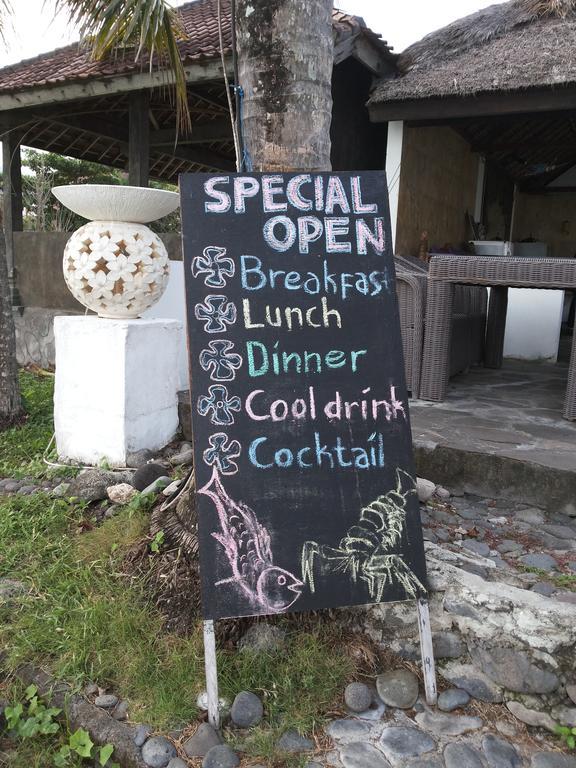 SPECIAL
OPEN
Breakfast
Lunch
Dinner
Cool drink
Cocktail